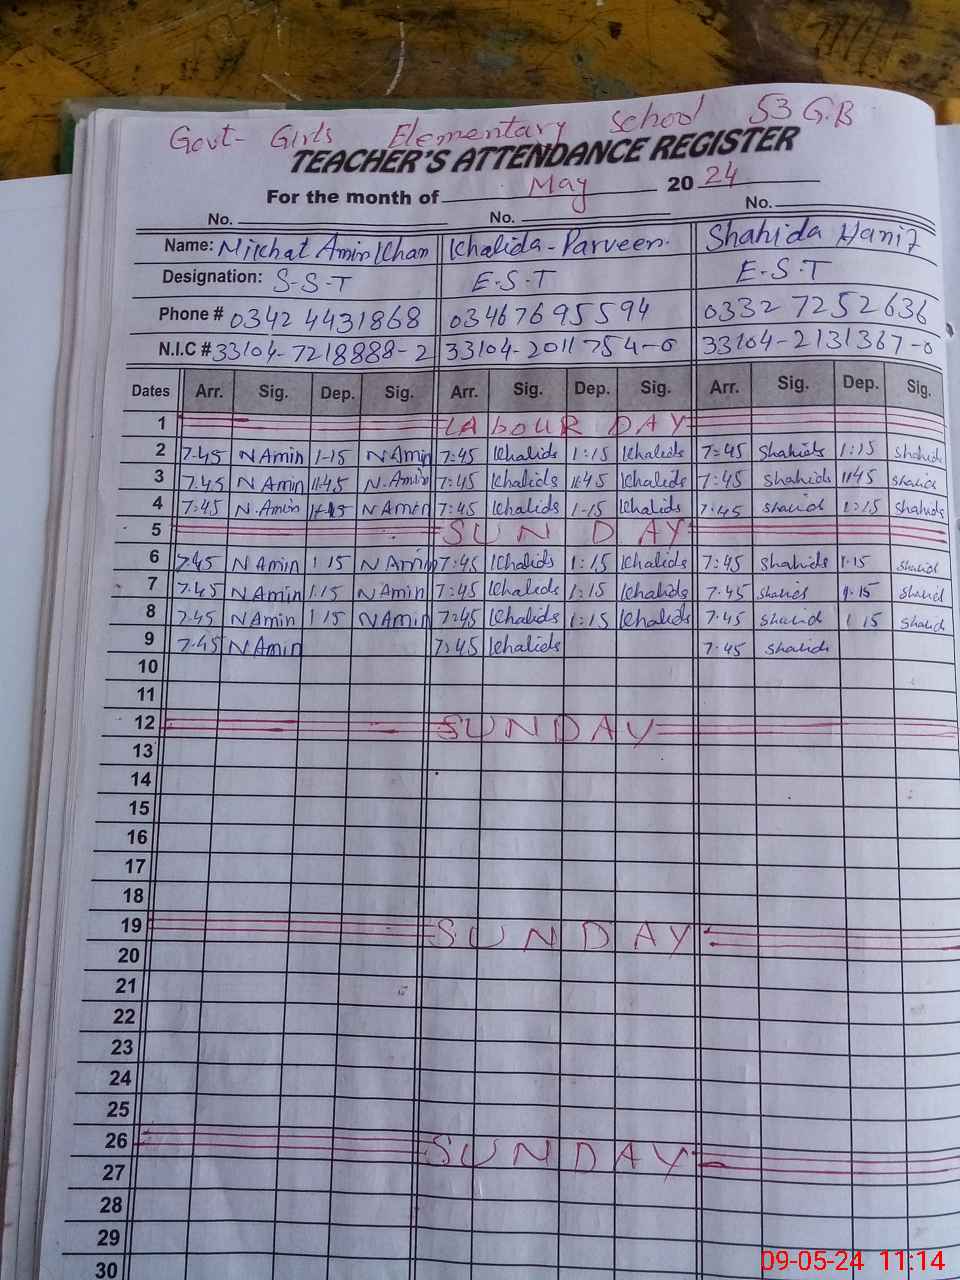 Govt- Girls Elementary School 53 G.B
TEACHER'S ATTENDANCE REGISTER
For the month of May 20 24
No. No. No.
Name: Khalida-Parveen. Shahida Hanif
Designation: S-S-T E-S-T E-S-T
Phone # 0342 4431868 03467695594 0332 7252636
N.I.C # 33104-7218888-2 33104-2011754-0 33104-2131367-0
Dates Arr. Sig. Dep. Sig. Arr. Sig. Dep. Sig. Arr. Sig. Dep. Sig.
1 LAbOUR DAY
2 7.45 N Amin 1-15 N Amin 7:45 Khalids 1:15 Khalids 7:45 Shahids 1:15 Shahids
3 7.45 N Amin 11:45 N.Amin 7:45 Khalids 11:45 Khalids 7:45 Shahids 11:45 Shahid
4 7:45 N.Amin N Amin 7:45 Khalids 1-15 Khalids 7:45 Shahid 1:15 Shahids
5 SUNDAY
6 7.45 N Amin 1 15 N Amin 7:45 Khalids 1:15 Khalids 7:45 Shahids 1.15 Shahid
7 7.45 N Amin 1.15 N Amin 7:45 Khalids 1:15 Khalids 7.45 Shahid 1.15 Shahid
8 7.45 N Amin 1 15 N Amin 7:45 Khalids 1:15 Khalids 7.45 Shahid 1 15 Shahid
9 7.45 N Amin 7:45 Khalids 7.45 Shahids
10
11
12 SUNDAY
13
14
15
16
17
18
19 SUNDAY
20
21
22
23
24
25
26 SUNDAY
27
28
29
30
09-05-24 11:14